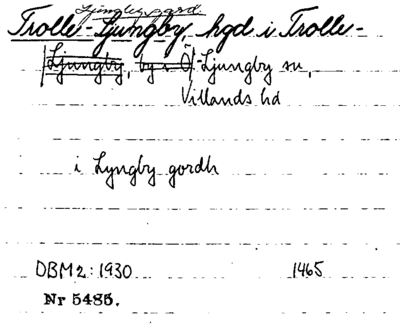 Ljungby gård.
Trolle-Ljungby, hgd i Trolle-
Ljungby, by i Ö -Ljungby sn,
Villands hd
i Lyngby gordh
DBM 2: 1930 1465
Nr 5485.